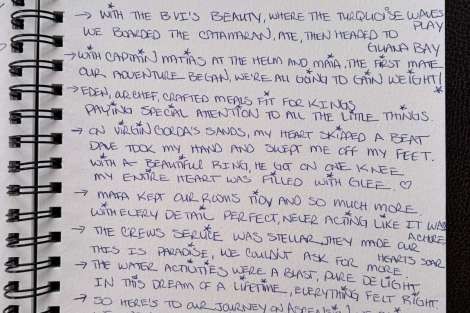 → WITH THE BVI'S BEAUTY, WHERE THE TURQUOISE WAVES PLAY
WE BOARDED THE CATAMARAN, ATE, THEN HEADED TO GUANA BAY
→ WITH CAPTAIN MATIAS AT THE HELM AND MAIA, THE FIRST MATE
OUR ADVENTURE BEGAN, WE'RE ALL GOING TO GAIN WEIGHT!
→ EDEN, AIR CHEF, CRAFTED MEALS FIT FOR KINGS
PAYING SPECIAL ATTENTION TO ALL THE LITTLE THINGS.
→ ON VIRGIN GORDA'S SANDS, MY HEART SKIPPED A BEAT
DAVE TOOK MY HAND AND SWEPT ME OFF MY FEET.
WITH A BEAUTIFUL RING, HE GOT ON ONE KNEE
MY ENTIRE HEART WAS FILLED WITH GLEE. ♡
→ MAIA KEPT OUR ROOMS TIDY AND SO MUCH MORE
WITH EVERY DETAIL PERFECT, NEVER ACTING LIKE IT WAS A CHORE
→ THE CREWS SERVICE WAS STELLAR, THEY MADE OUR HEARTS SOAR
THIS IS PARADISE, WE COULDN'T ASK FOR MORE.
→ THE WATER ACTIVITIES WERE A BLAST, PURE DELIGHT
IN THIS DREAM OF A LIFETIME, EVERYTHING FELT RIGHT.
→ SO HERE'S TO OUR JOURNEY ON